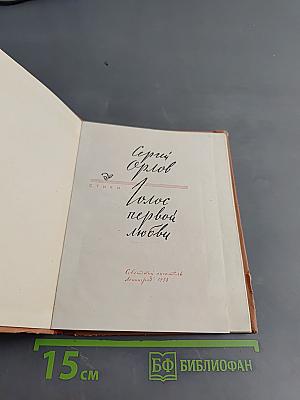 Сергей
Орлов
СТИХИ
Голос
первой
любви
Советский писатель
Ленинград 1958
15 см
БФ БИБЛИОФАН